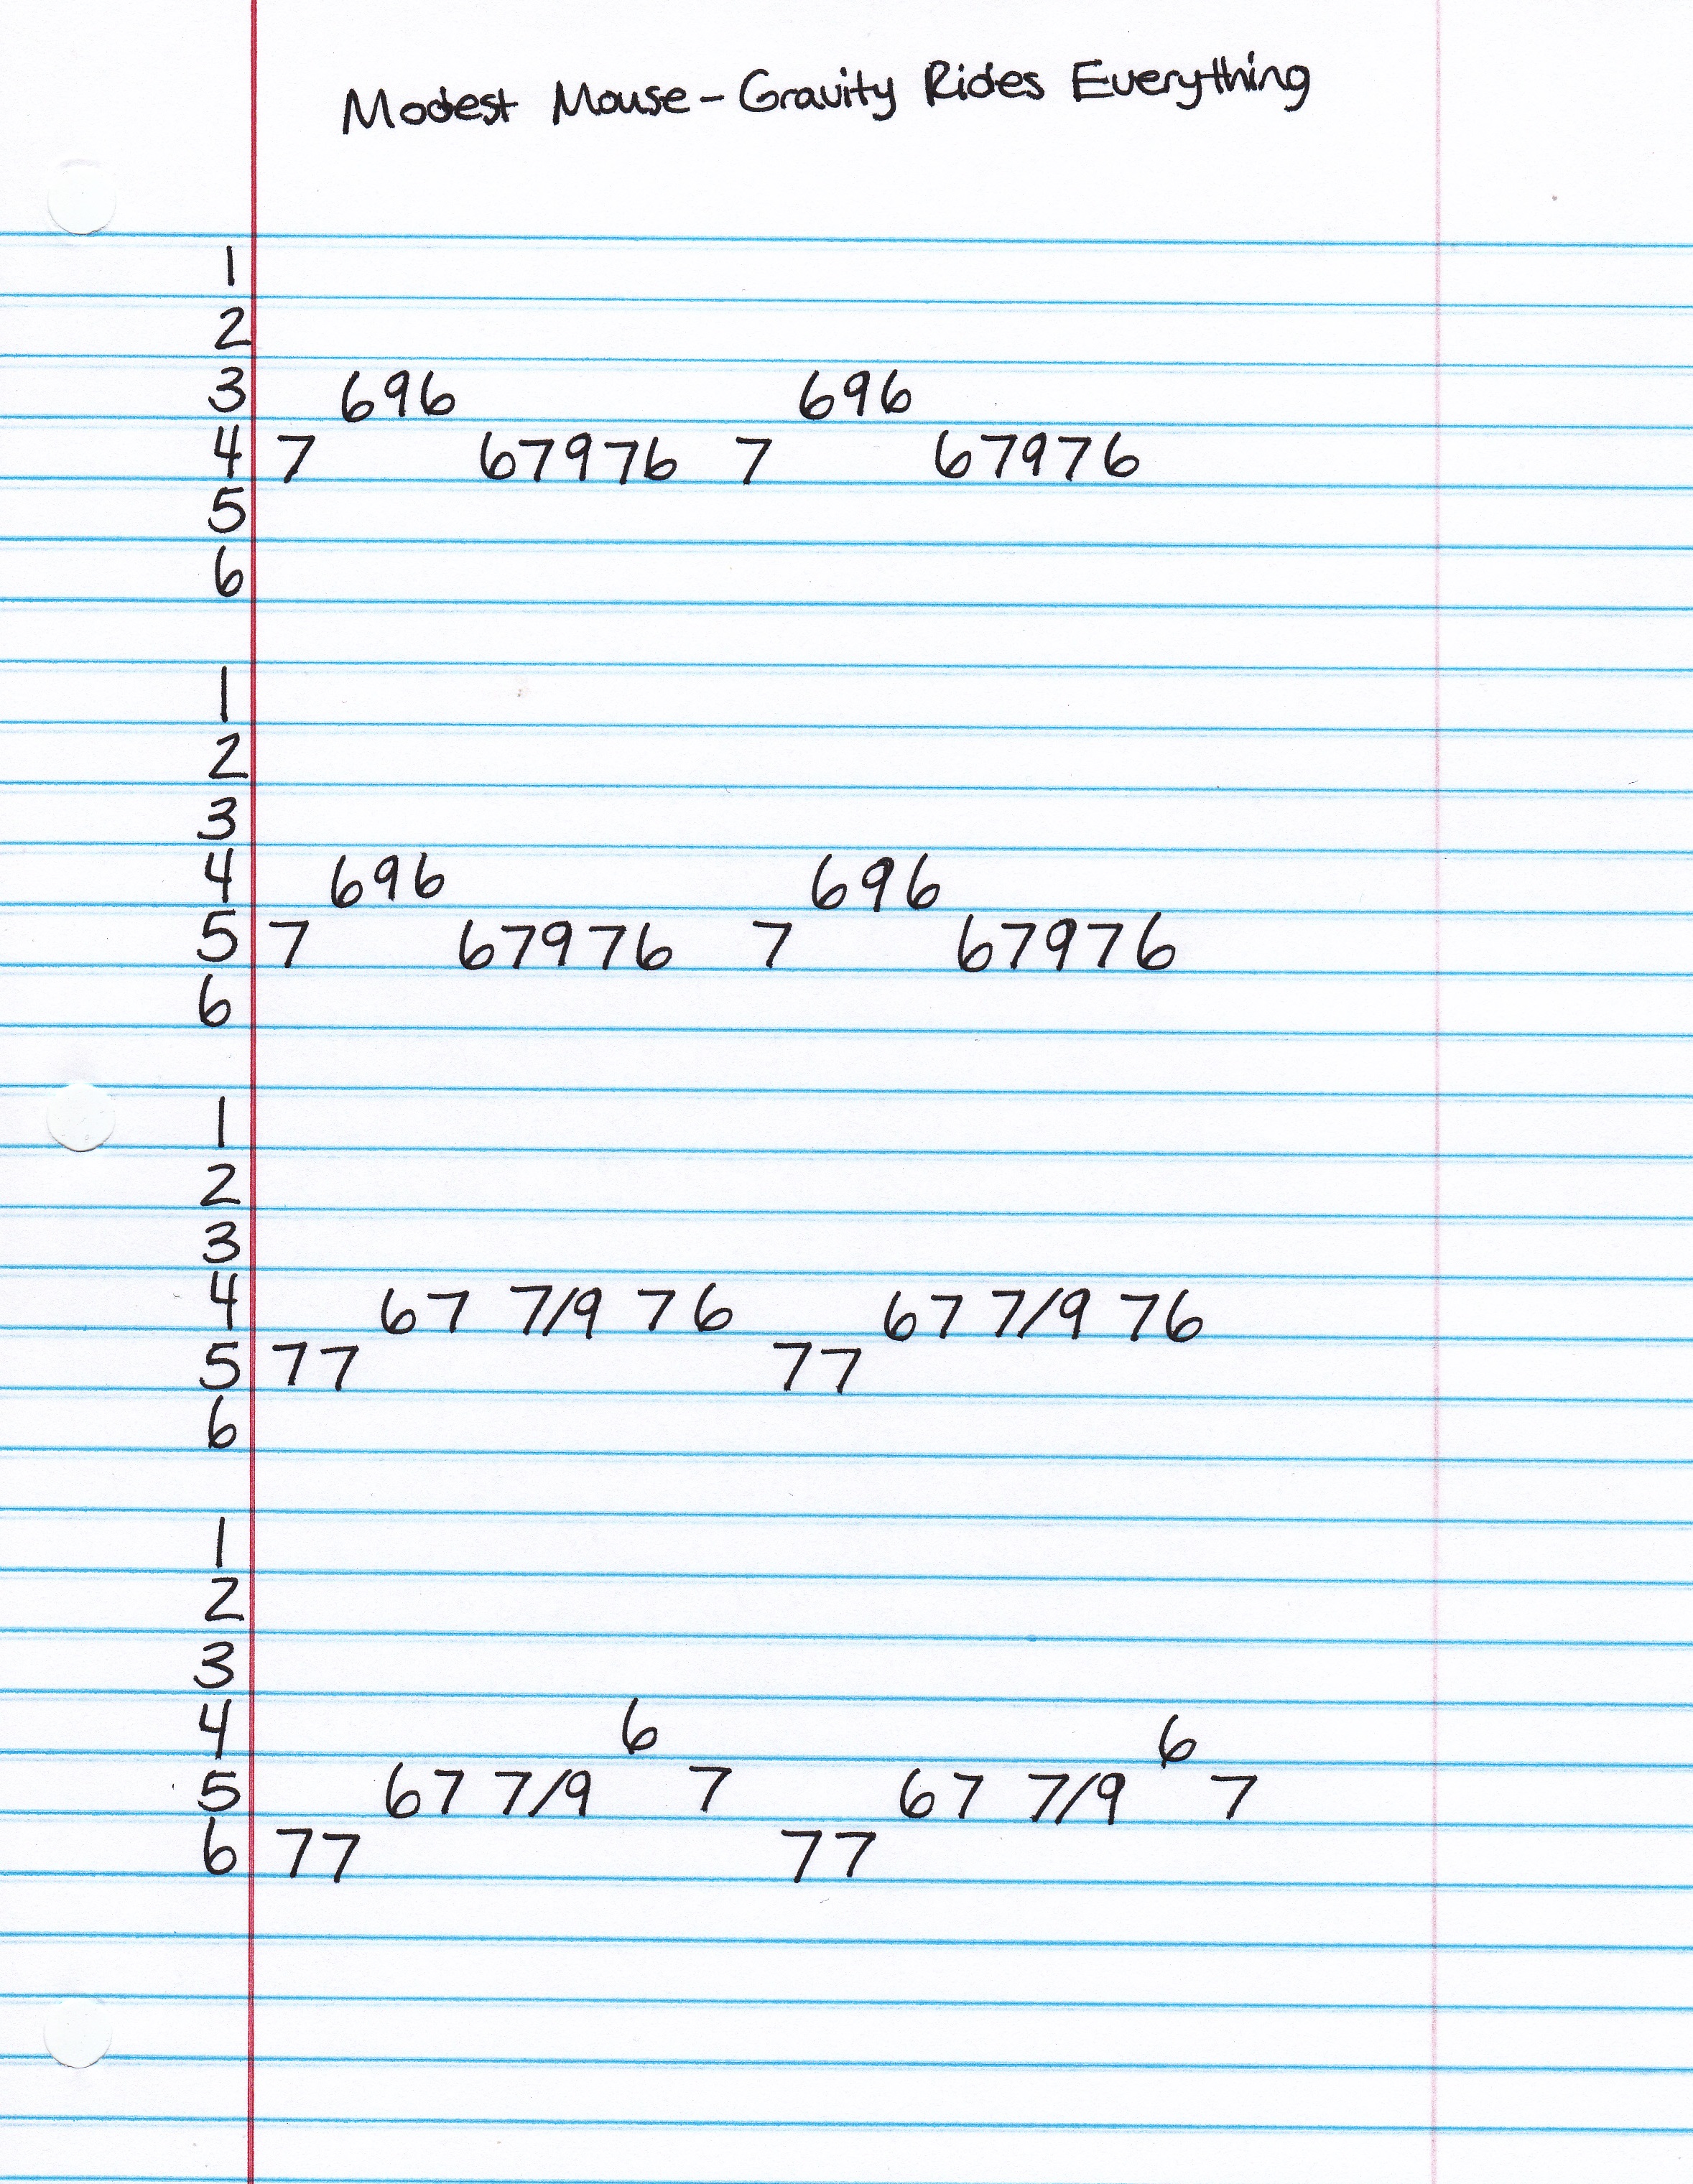 Modest Mouse - Gravity Rides Everything
1
2
3 696 696
4 7 67976 7 67976
5
6
1
2
3
4 696 696
5 7 67976 7 67976
6
1
2
3
4 67 7/9 76 67 7/9 76
5 77 77
6
1
2
3
4 6 6
5 67 7/9 7 67 7/9 7
6 77 77